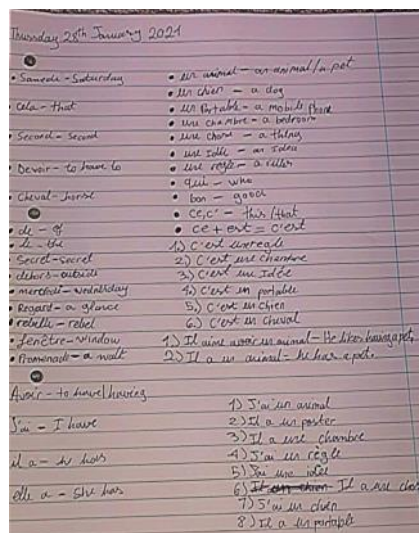 Thursday 28th January 2021
• Samedi - Saturday
• Cela - that
• Second - Second
• Devoir - to have to
• Cheval - horse
• de - of
• le - the
Secret - secret
• dehors - outside
• mercredi - wednesday
• Regard - a glance
• rebelle - rebel
• fenêtre - window
• Promenade - a walk
• un animal - an animal/a pet
• un chien - a dog
• un Portable - a mobile Phone
• une chambre - a bedroom
• une chose - a thing
• une Idée - an Idea
• une règle - a ruler
• qui - who
• bon - good
• ce, c' - this/that
• ce + est = c'est
1.) C'est une règle
2.) C'est une chambre
3.) C'est une Idée
4.) C'est un portable
5.) C'est un chien
6.) C'est un cheval
1.) Il aime avoir un animal - He likes having a pet.
2.) Il a un animal - he has a pet.
Avoir - to have/having
J'ai - I have
il a - he has
elle a - She has
1) J'ai un animal
2) Il a un poster
3) Il a une chambre
4) J'ai un règle
5) J'ai une idée
6) Il a une
7) J'ai un chien
8) Il a un portable